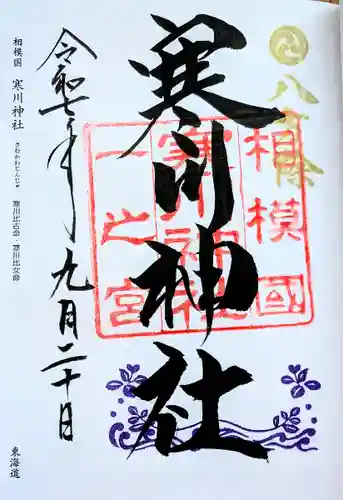 八方除
寒川神社
相模國
寒川神社
一之宮
令和七年九月二十日
相模国 寒川神社 さむかわじんじゃ 寒川比古命・寒川比女命
東海道